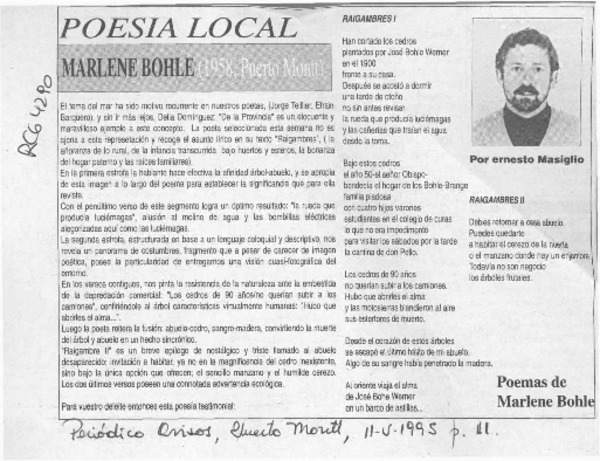 POESIA LOCAL
MARLENE BOHLE (1958, Puerto Montt)
RCG 4290
El tema del mar ha sido motivo recurrente en nuestros poetas, (Jorge Teillier, Efraín
Barquero), y sin ir más lejos, Delia Domínguez. "De la Provincia" es un elocuente y
maravilloso ejemplo a este concepto. La poeta seleccionada esta semana no es
ajena a esta representación y recoge el asunto lírico en su texto "Raigambres", ( la
añoranza de lo rural, de la infancia transcurrida bajo huertos y esteros, la bonanza
del hogar paterno y las raíces familiares).
En la primera estrofa la hablante hace efectiva la afinidad árbol-abuelo, y se apropia
de esta imagen a lo largo del poema para establecer la significancia que para ella
reviste.
Con el penúltimo verso de este segmento logra un óptimo resultado: "la rueda que
producía luciérnagas", alusión al molino de agua y las bombillas eléctricas
alegorizadas aquí como las luciérnagas.
La segunda estrofa, estructurada en base a un lenguaje coloquial y descriptivo, nos
revela un panorama de costumbres, fragmento que a pesar de carecer de imagen
poética, posee la particularidad de entregarnos una visión cuasi-fotográfica del
entorno.
En los versos contiguos, nos pinta la resistencia de la naturaleza ante la embestida
de la depredación comercial: "Los cedros de 90 años/no querían subir a los
camiones", confiriéndole al árbol características virtualmente humanas: "Hubo que
abrirles el alma...".
Luego la poeta reitera la fusión: abuelo-cedro, sangre-madera, convirtiendo la muerte
del árbol y abuelo en un hecho sincrónico.
"Raigambre II" es un breve epílogo de nostálgico y triste llamado al abuelo
desaparecido: invitación a habitar, ya no en la magnificencia del cedro inexistente,
sino bajo la única opción que ofrecen; el sencillo manzano y el humilde cerezo.
Los dos últimos versos poseen una connotada advertencia ecológica.
Para vuestro deleite entonces esta poesía testimonial:
RAIGAMBRES I
Han cortado los cedros
plantados por José Bohle Werner
en el 1900
frente a su casa.
Después se acostó a dormir
una tarde de otoño
no sin antes revisar
la rueda que producía luciérnagas
y las cañerías que traían el agua
desde la loma.
Bajo estos cedros
el año 50-el señor Obispo-
bendecía el hogar de los Bohle-Brange
familia piadosa
con cuatro hijos varones
estudiantes en el colegio de curas
lo que no era impedimento
para visitar los sábados por la tarde
la cantina de don Pollo.
Los cedros de 90 años
no querían subir a los camiones.
Hubo que abrirles el alma
y las motosierras blandieron al aire
sus estertores de muerto.
Desde el corazón de estos árboles
se escapó el último hálito de mi abuelo.
Algo de su sangre había penetrado la madera.
Al oriente viaja el alma
de José Bohe Werner
en un barco de astillas...
Por ernesto Masiglio
RAIGAMBRES II
Debes retornar a casa abuelo.
Puedes quedarte
a habitar el cerezo de la huerta
o el manzano donde hay un enjambre.
Todavía no son negocio
los árboles frutales.
Poemas de
Marlene Bohle
Periódico Avisos, Puerto Montt, 11-V-1995 p. 11.